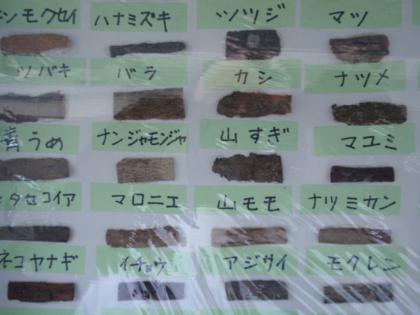 ンモクセイ ハナミズキ ツツジ マツ
ツバキ バラ カシ ナツメ
青うめ ナンジャモンジャ 山すぎ マユミ
タセコイア マロニエ 山モモ ナツミカン
ネコヤナギ イチョウ アジサイ モクレン